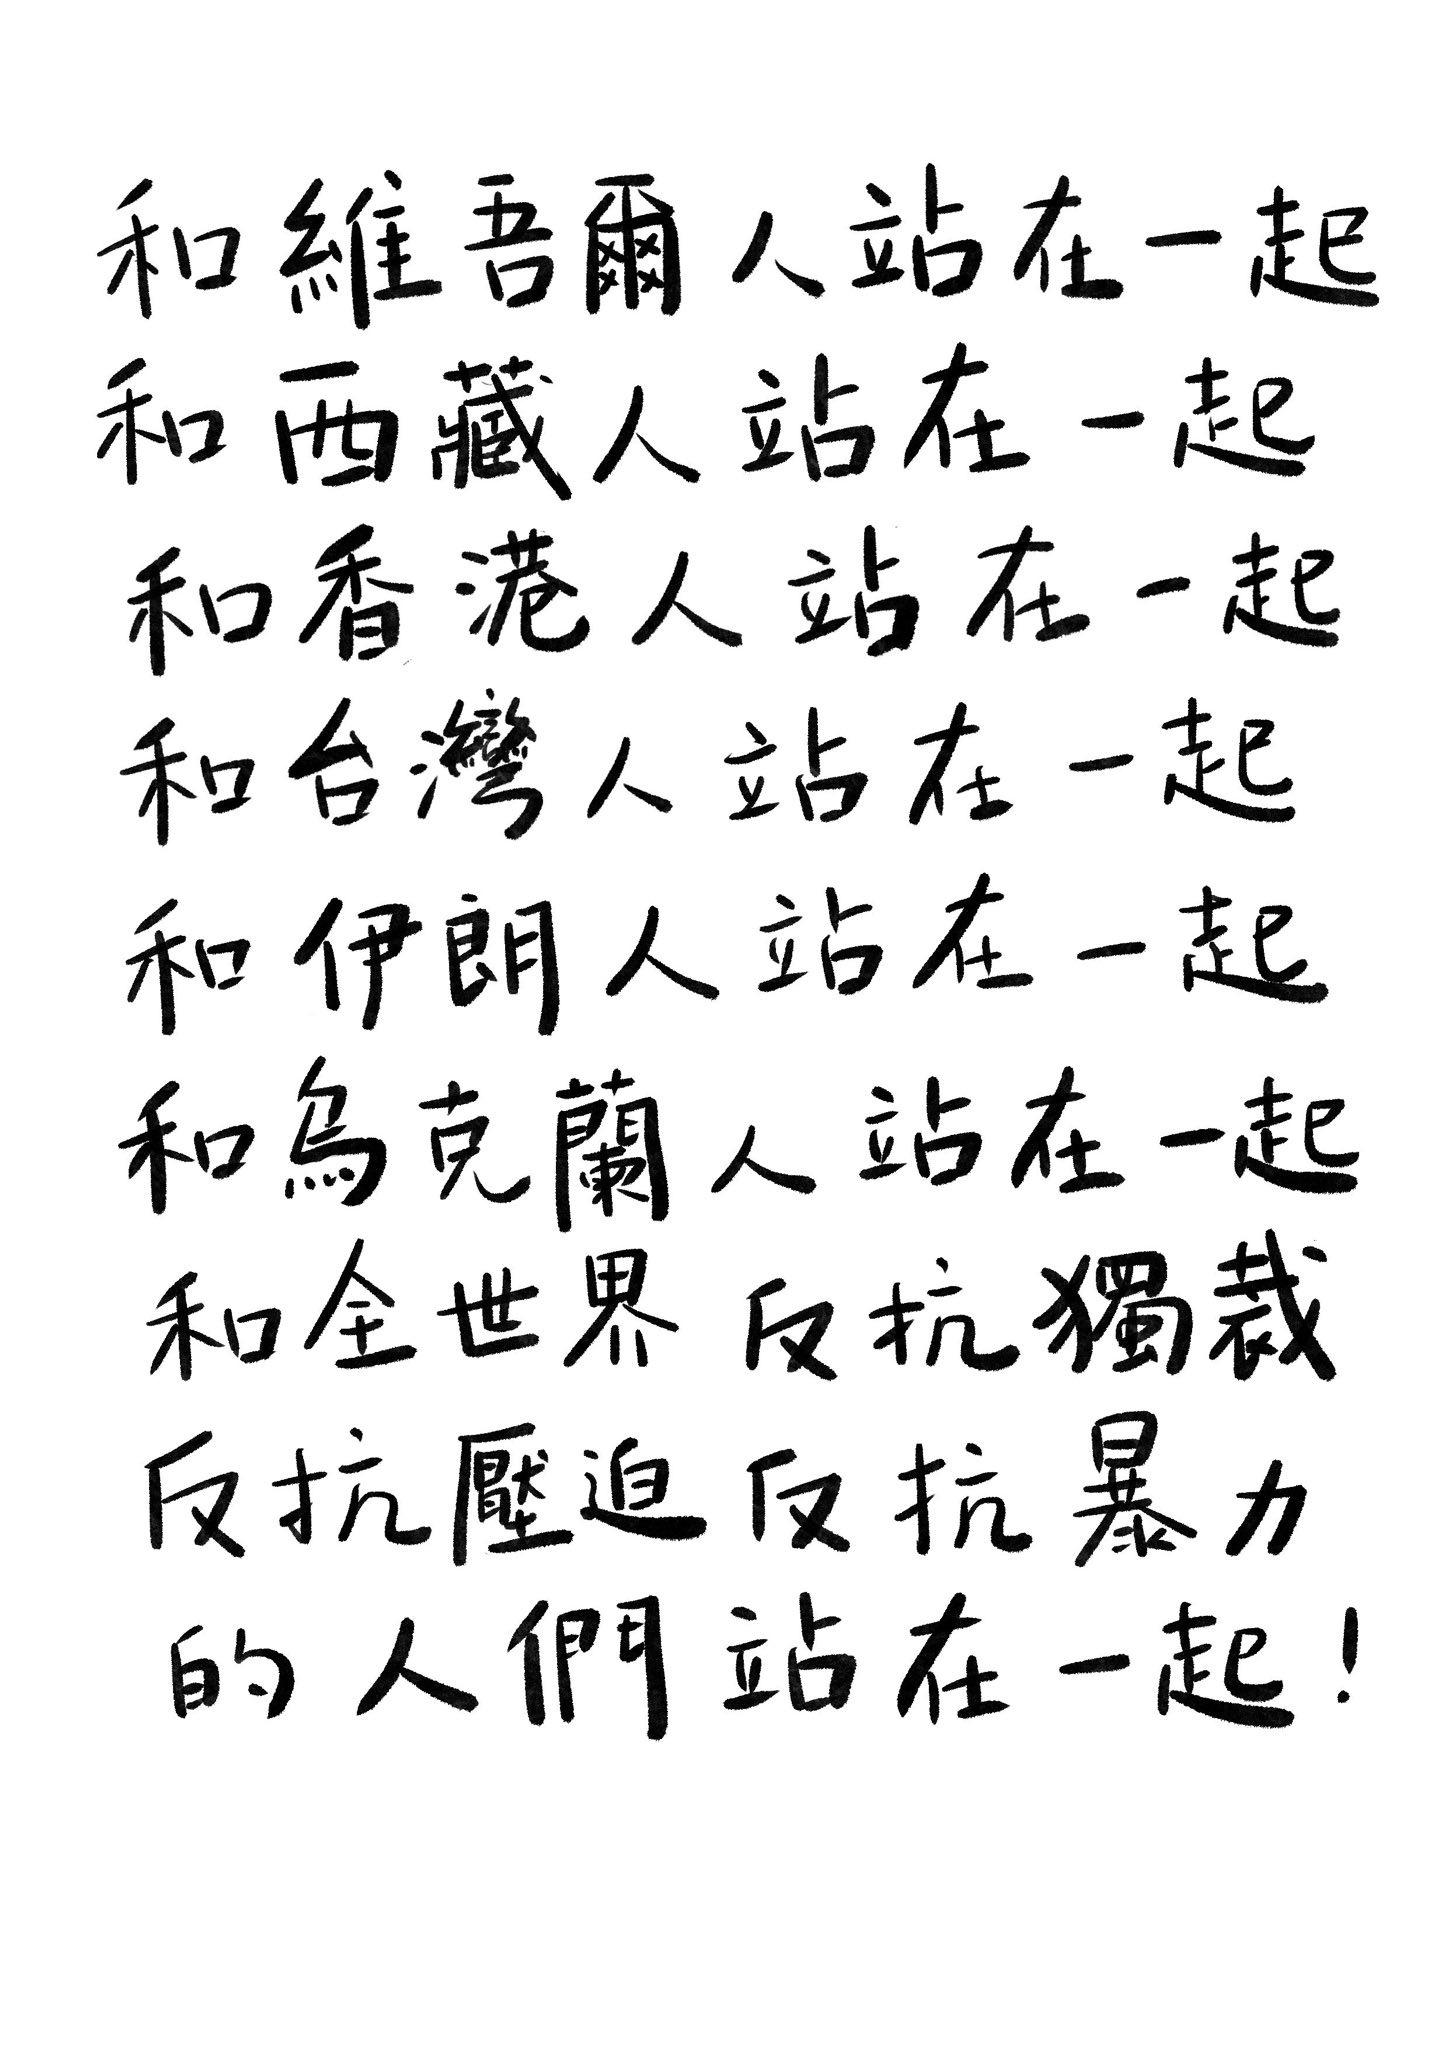 和維吾爾人站在一起
和西藏人站在一起
和香港人站在一起
和台灣人站在一起
和伊朗人站在一起
和烏克蘭人站在一起
和全世界 反抗獨裁
反抗壓迫 反抗暴力
的人們站在一起！